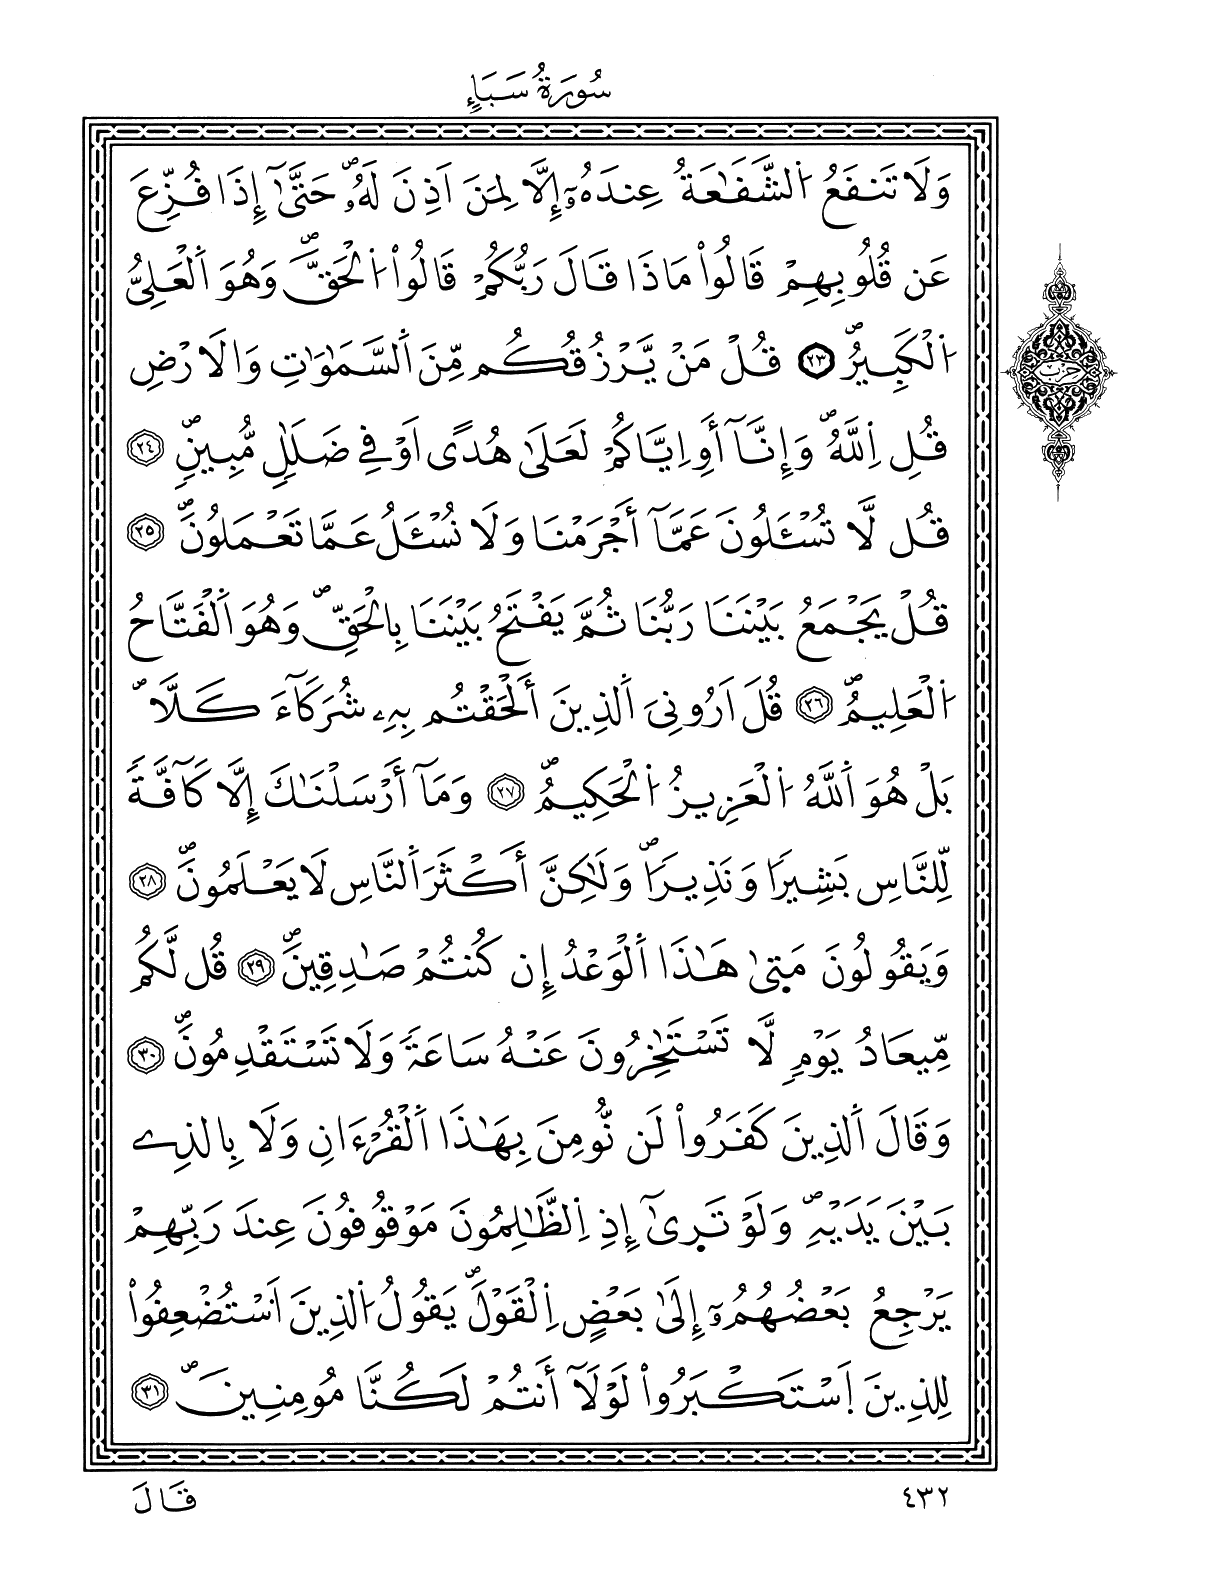 سُورَةُ سَبَإٍ
وَلَا تَنفَعُ اُ۬لشَّفَٰعَةُ عِندَهُۥٓ إِلَّا لِمَنَ اَذِنَ لَهُۥۖ حَتَّىٰٓ إِذَا فُزِّعَ
عَن قُلُوبِهِمْ قَالُواْ مَاذَا قَالَ رَبُّكُمْ قَالُواْ اُ۬لْحَقَّۖ وَهُوَ اَ۬لْعَلِيُّ
اُ۬لْكَبِيرُۖ ٢٣ قُلْ مَنْ يَّرْزُقُكُم مِّنَ اَ۬لسَّمَٰوَٰتِ وَالَارْضِ
قُلِ اِ۬للَّهُۖ وَإِنَّآ أَوِ اِيَّاكُمْ لَعَلَىٰ هُدًى اَوْ فِے ضَلَٰلٖ مُّبِينٖۖ ٢٤
قُل لَّا تُسْـَٔلُونَ عَمَّآ أَجْرَمْنَا وَلَا نُسْـَٔلُ عَمَّا تَعْمَلُونَۖ ٢٥
قُلْ يَجْمَعُ بَيْنَنَا رَبُّنَا ثُمَّ يَفْتَحُ بَيْنَنَا بِالْحَقِّۖ وَهُوَ اَ۬لْفَتَّاحُ
اُ۬لْعَلِيمُۖ ٢٦ قُلَ اَرُونِيَ اَ۬لذِينَ أَلْحَقْتُم بِهِۦ شُرَكَآءَ كَلَّاۖ
بَلْ هُوَ اَ۬للَّهُ اُ۬لْعَزِيزُ اُ۬لْحَكِيمُۖ ٢٧ وَمَآ أَرْسَلْنَٰكَ إِلَّا كَآفَّةٗ
لِّلنَّاسِ بَشِيراٗ وَنَذِيراٗۖ وَلَٰكِنَّ أَكْثَرَ اَ۬لنَّاسِ لَا يَعْلَمُونَۖ ٢٨
وَيَقُولُونَ مَتَىٰ هَٰذَا اَ۬لْوَعْدُ إِن كُنتُمْ صَٰدِقِينَۖ ٢٩ قُل لَّكُم
مِّيعَادُ يَوْمٖ لَّا تَسْتَـٰٔخِرُونَ عَنْهُ سَاعَةٗ وَلَا تَسْتَقْدِمُونَۖ ٣٠
وَقَالَ اَ۬لذِينَ كَفَرُواْ لَن نُّومِنَ بِهَٰذَا اَ۬لْقُرْءَانِ وَلَا بِالذِے
بَيْنَ يَدَيْهِۖ وَلَوْ تَرَىٰٓ إِذِ اِ۬لظَّٰلِمُونَ مَوْقُوفُونَ عِندَ رَبِّهِمْ
يَرْجِعُ بَعْضُهُمُۥٓ إِلَىٰ بَعْضٍ اِ۬لْقَوْلَۖ يَقُولُ اُ۬لذِينَ اَ۟سْتُضْعِفُواْ
لِلذِينَ اَ۪سْتَكْبَرُواْ لَوْلَآ أَنتُمْ لَكُنَّا مُومِنِينَۖ ٣١
٤٣٢
قَالَ
حزب